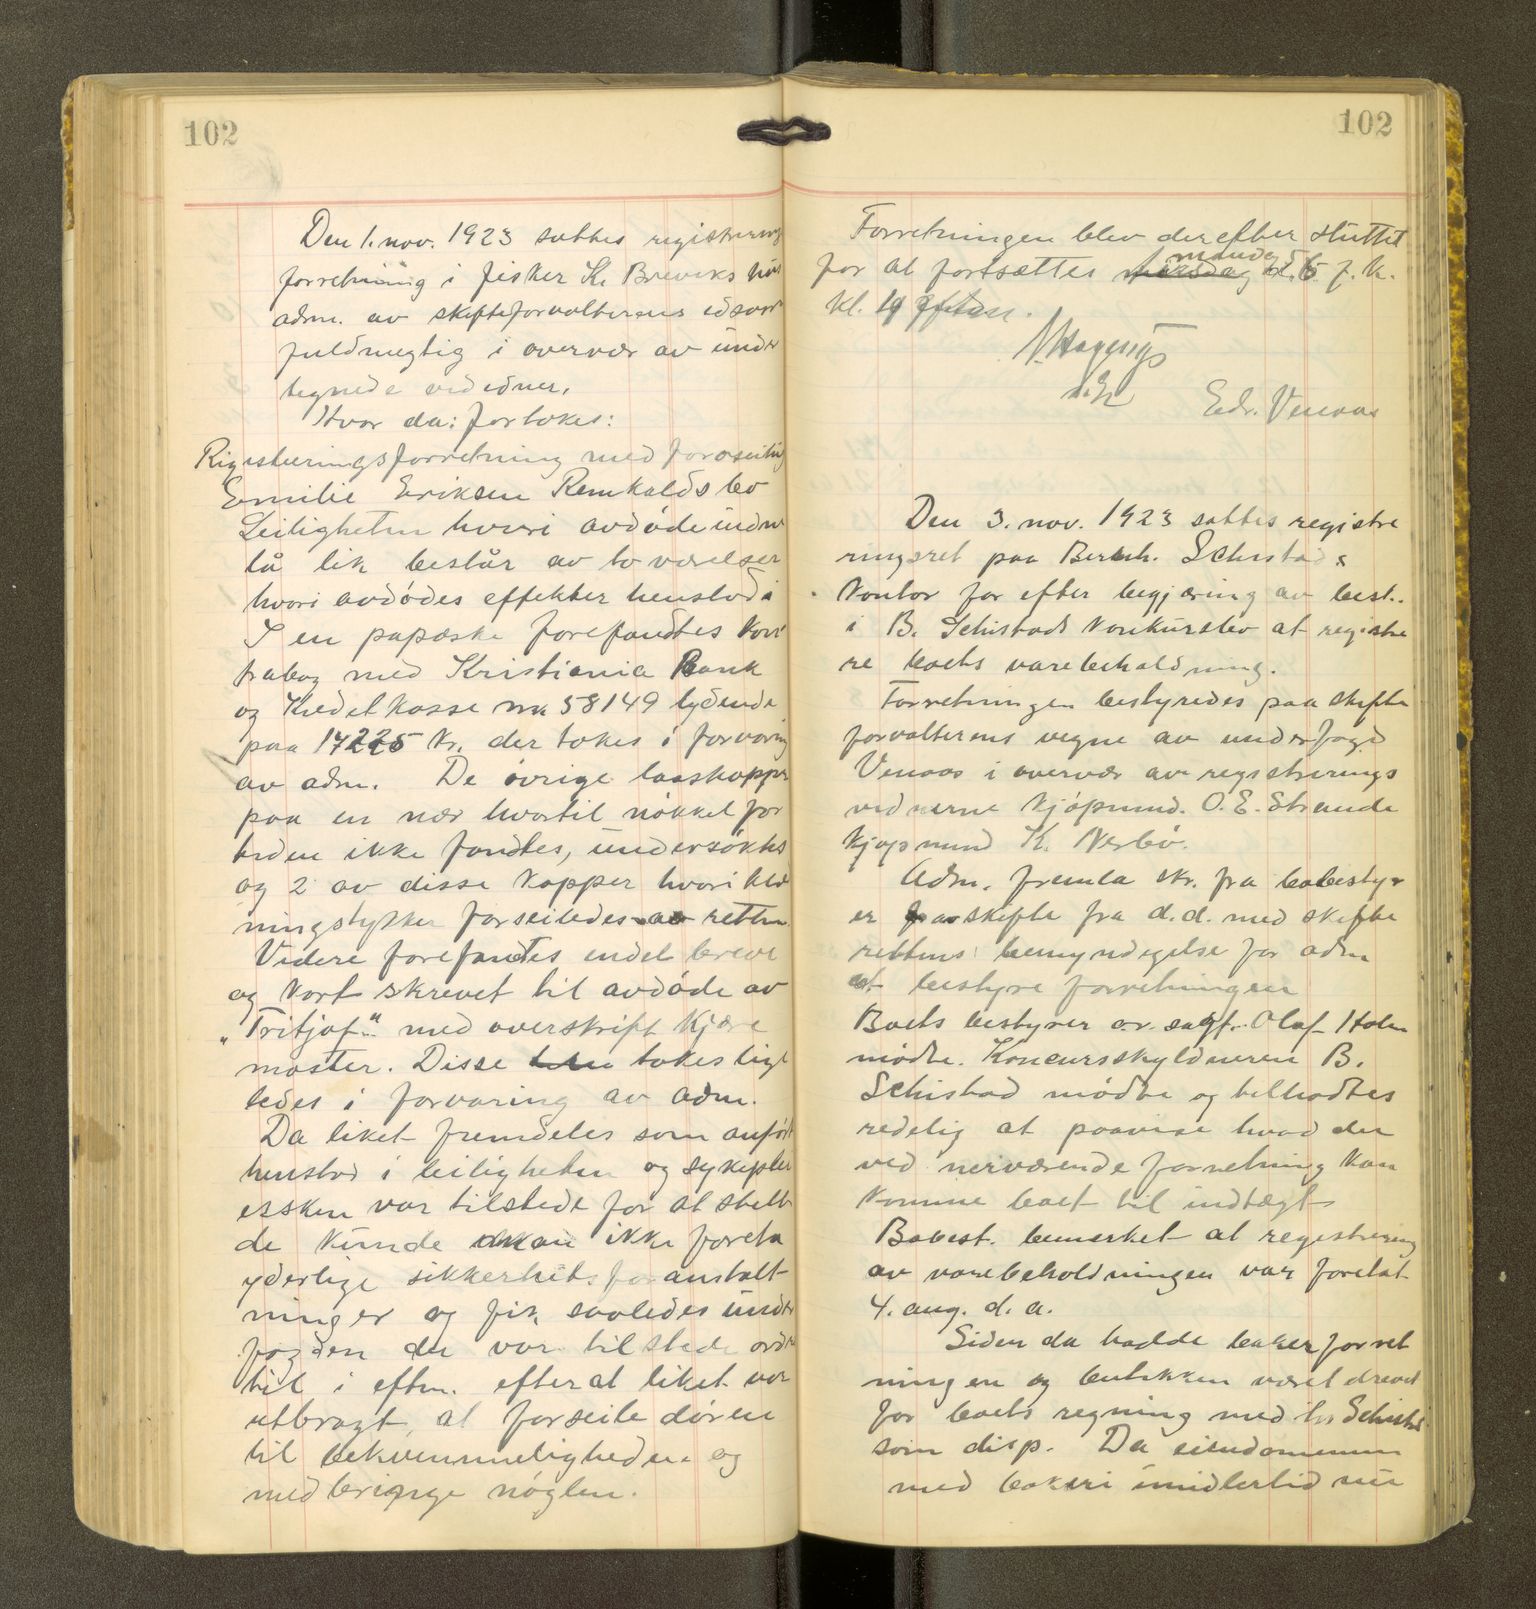 102
Den 1. nov. 1923 sattes registrerings
forretning i fisker K. Breviks hus
adm. av skifteforvalterens edsvor
fuldmegtig i overvær av under
tegnede vidner.
Hvor da: fortokes:
Registreringsforretning med forsegling
Emilie Eriksen Remholds bo
Leiligheten hvori avdøde
lå lik består av to værelser
hvori avdødes effekter henstod
I en papæske forefandtes kon
trabog med Kristiania Bank
og Kredetkasse nr 58149 lydende
paa 17225 kr. der tokes i forvaring
av adm. De øvrige
paa en nær hvortil nøkkel for
tiden ikke fandtes, undersøktes
og 2 av disse kopper hvori klæ
ningstykker forseiledes av retten.
Videre forefandtes endel breve
og kort skrevet til avdøde av
„Fritjof" med overskrift kjære
moster. Disse tokes lige
ledes i forvaring av adm.
Da liket fremdeles som anført
henstod i leiligheten og sykeplei
ersken var tilstede for at stelle
de kunde man ikke foreta
yderlige sikkerhetsforanstalt
ninger og fik saaledes under
fogden der var tilstede ordre
til i eftm. efterat liket var
utbragt, at forseile døren
til bekvemmeligheden og
medbringe nøglen.
102
Forretningen blev derefter sluttet
for at fortsættes mandag d. 5 f. k.
kl.
Edr. Venaas
Den 3. nov. 1923 sattes registre
ringsret paa Bernh. Schistads
kontor for efter begjæring av best.
i B. Schistads konkursbo at registre
re boets varebeholdning.
Forretningen bestyredes paa skifte
forvalterens vegne av underfogd
Venaas i overvær av registrerings
vidnerne kjøpmd. O. E. Strande
kjøpmand K. Nesbø.
Adm. fremla skr. fra bobestyr
er skifte fra d.d. med skifte
rettens bemyndigelse for adm
at bestyre forretningen
Boets bestyrer o.r. sagf. Olaf Holm
møtte. Konkursskyldneren B.
Schistad mødte og tilholdtes
redelig at paavise hvad der
ved nerværende forretning kan
komme boet til indtægt
Bobest. bemerket at registrering
av varebeholdningen var foretat
4. aug. d. a.
Siden da hadde bakerforret
ningen og butikken været drevet
for boets regning med hr Schistad
som disp. Da eiendommen
med bakeri imidlertid nu